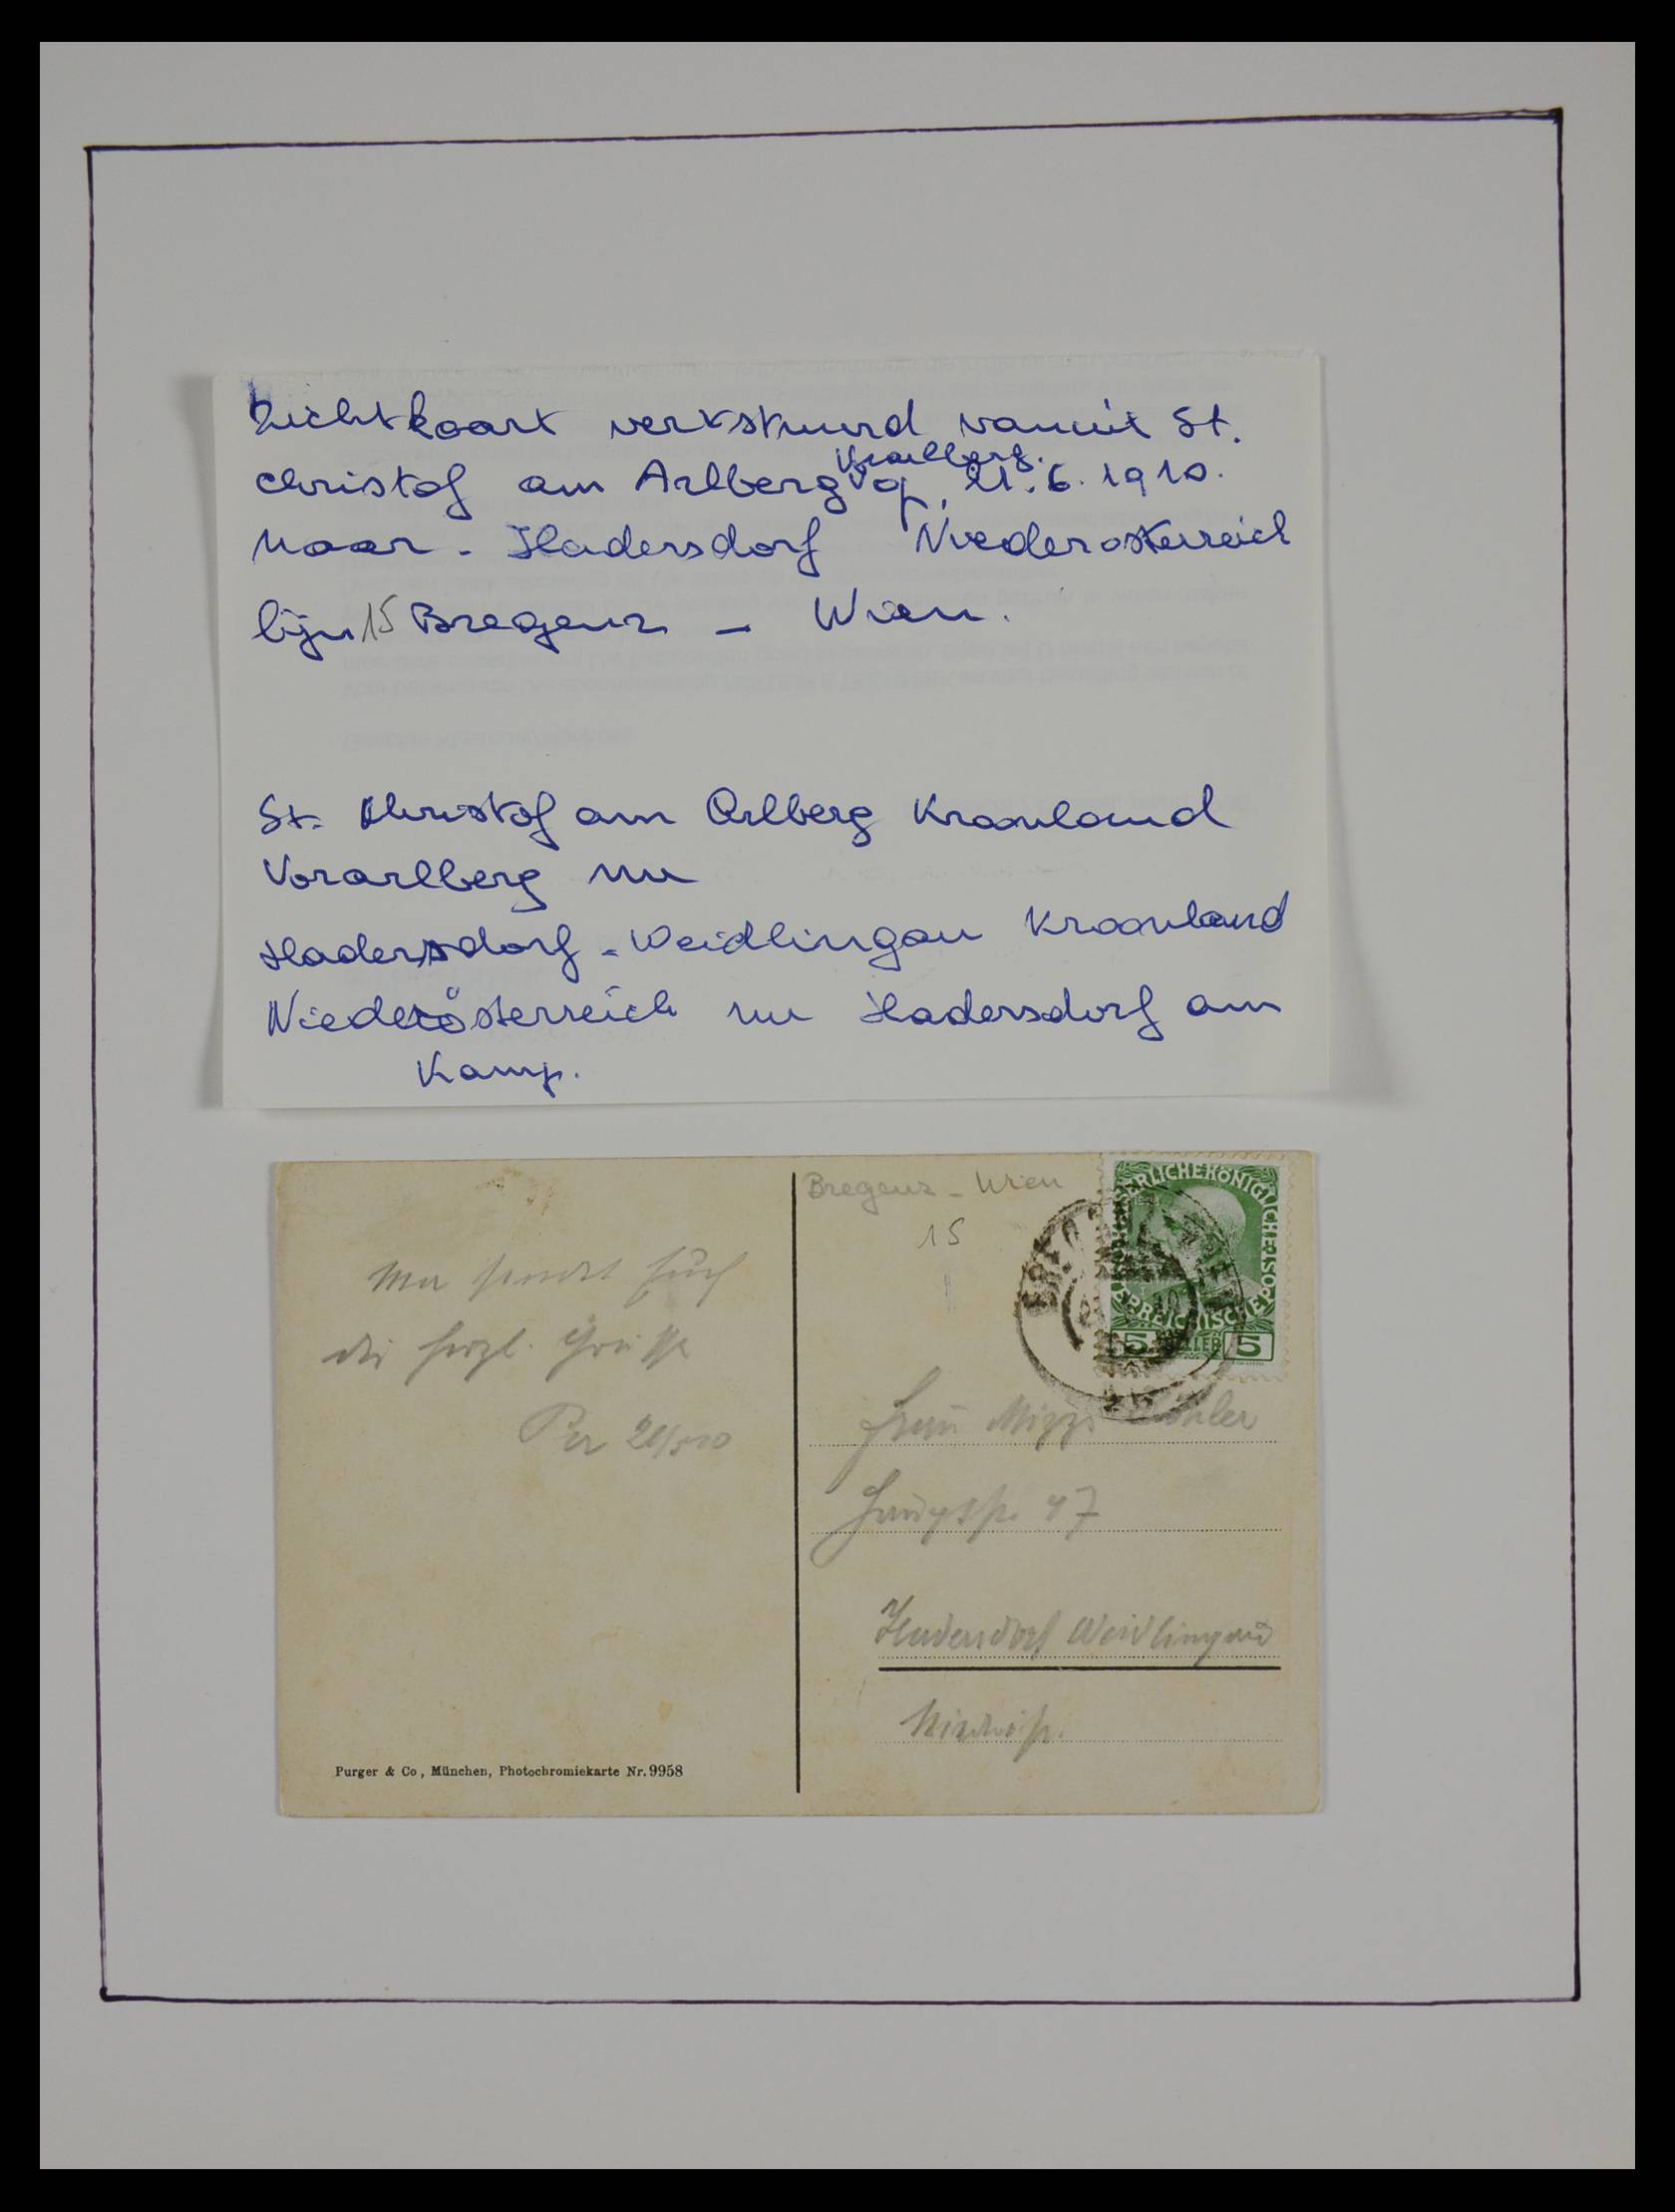 Zichtkaart verkstuurd vanuit St.
Christof am Arlberg Vorarlberg. op 21.6.1910.
Naar - Hadersdorf Niederosterreich
lijn 15 Bregenz – Wien.
St. Christof am Arlberg Kroonland
Vorarlberg nu
Hadersdorf - Weidlingau Kroonland
Niederösterreich nu Hadersdorf am
Kamp.
Bregenz - Wien
15
KAISERLICHE KÖNIGLICHE
ÖSTERREICHISCHE POST
5 HELLER 5
die herzl. Grüsse
Frau Mizzi
Hauptstr. 47
Hadersdorf Weidlingau
Purger & Co, München, Photochromiekarte Nr. 9958